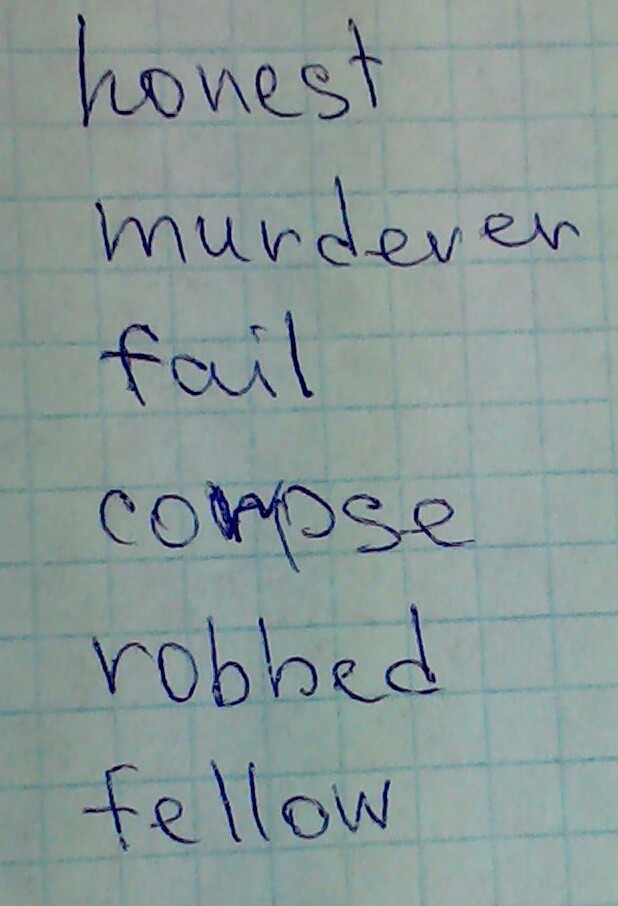 honest
murderer
fail
corpse
robbed
fellow